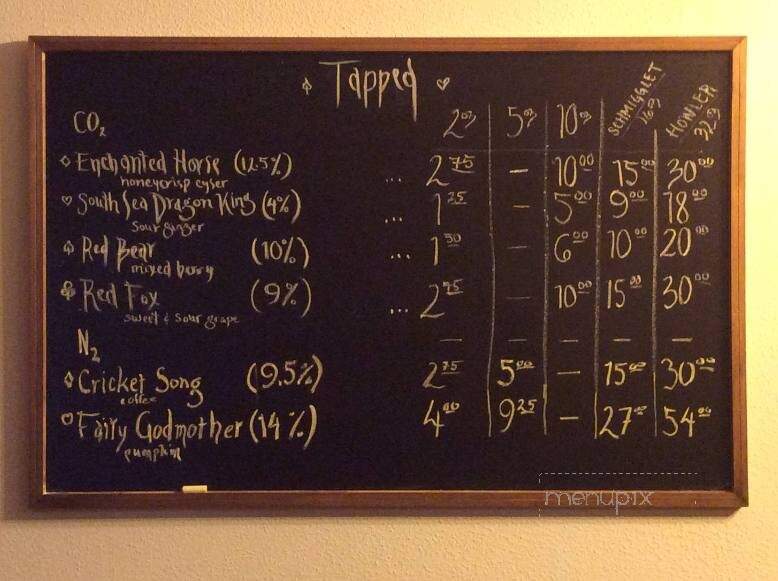 Tapped
CO2 2oz 5oz 10oz SCHMIGGLET 16oz HOWLER 32oz
Enchanted Horse (12.5%) ... 2 75 – 10 00 15 00 30 00
honeycrisp cyser
South Sea Dragon King (4%) ... 1 25 – 5 00 9 00 18 00
sour ginger
Red Bear (10%) ... 1 50 – 6 00 10 00 20 00
mixed berry
Red Fox (9%) ... 2 75 – 10 00 15 00 30 00
sweet & sour grape
N2 – – – – –
Cricket Song (9.5%) 2 75 5 00 – 15 00 30 00
coffee
Fairy Godmother (14%) 4 00 9 25 – 27 00 54 00
pumpkin
menupix